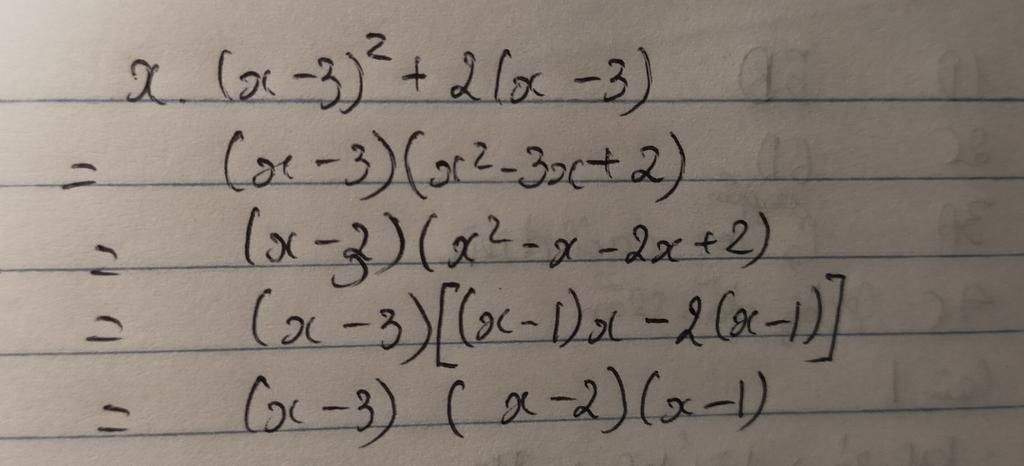 x. (x - 3)² + 2(x - 3)
= (x - 3)(x² - 3x + 2)
= (x - 3)(x² - x - 2x + 2)
= (x - 3)[(x - 1)x - 2(x - 1)]
= (x - 3) (x - 2)(x - 1)